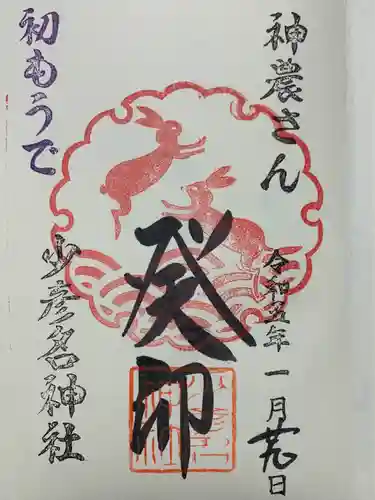 神農さん
令和五年一月廿九日
癸卯
初もうで
少彦名神社